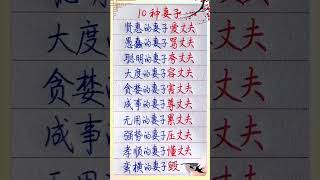 10种妻子
贤惠的妻子爱丈夫
愚蠢的妻子骂丈夫
聪明的妻子夸丈夫
大度的妻子容丈夫
贪婪的妻子害丈夫
成事的妻子尊丈夫
无用的妻子累丈夫
强势的妻子压丈夫
孝顺的妻子懂丈夫
蛮横的妻子毁